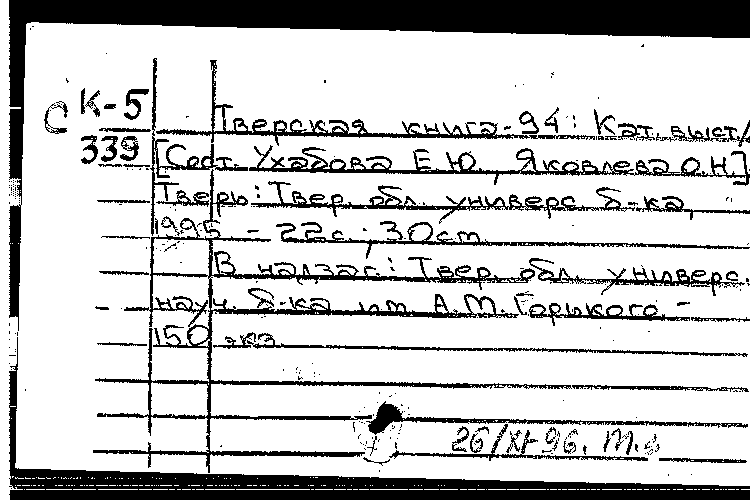 С К-5
339
Тверская книга-94: Кат. выст/
[Сост. Ухабова Е.Ю., Яковлева О.Н.]
Тверь: Твер. обл. универс. б-ка,
1995 - 22с.; 30см
В надзаг: Твер. обл. универс.
науч. б-ка им А.М.Горького. -
150 экз.
26/XI-96.